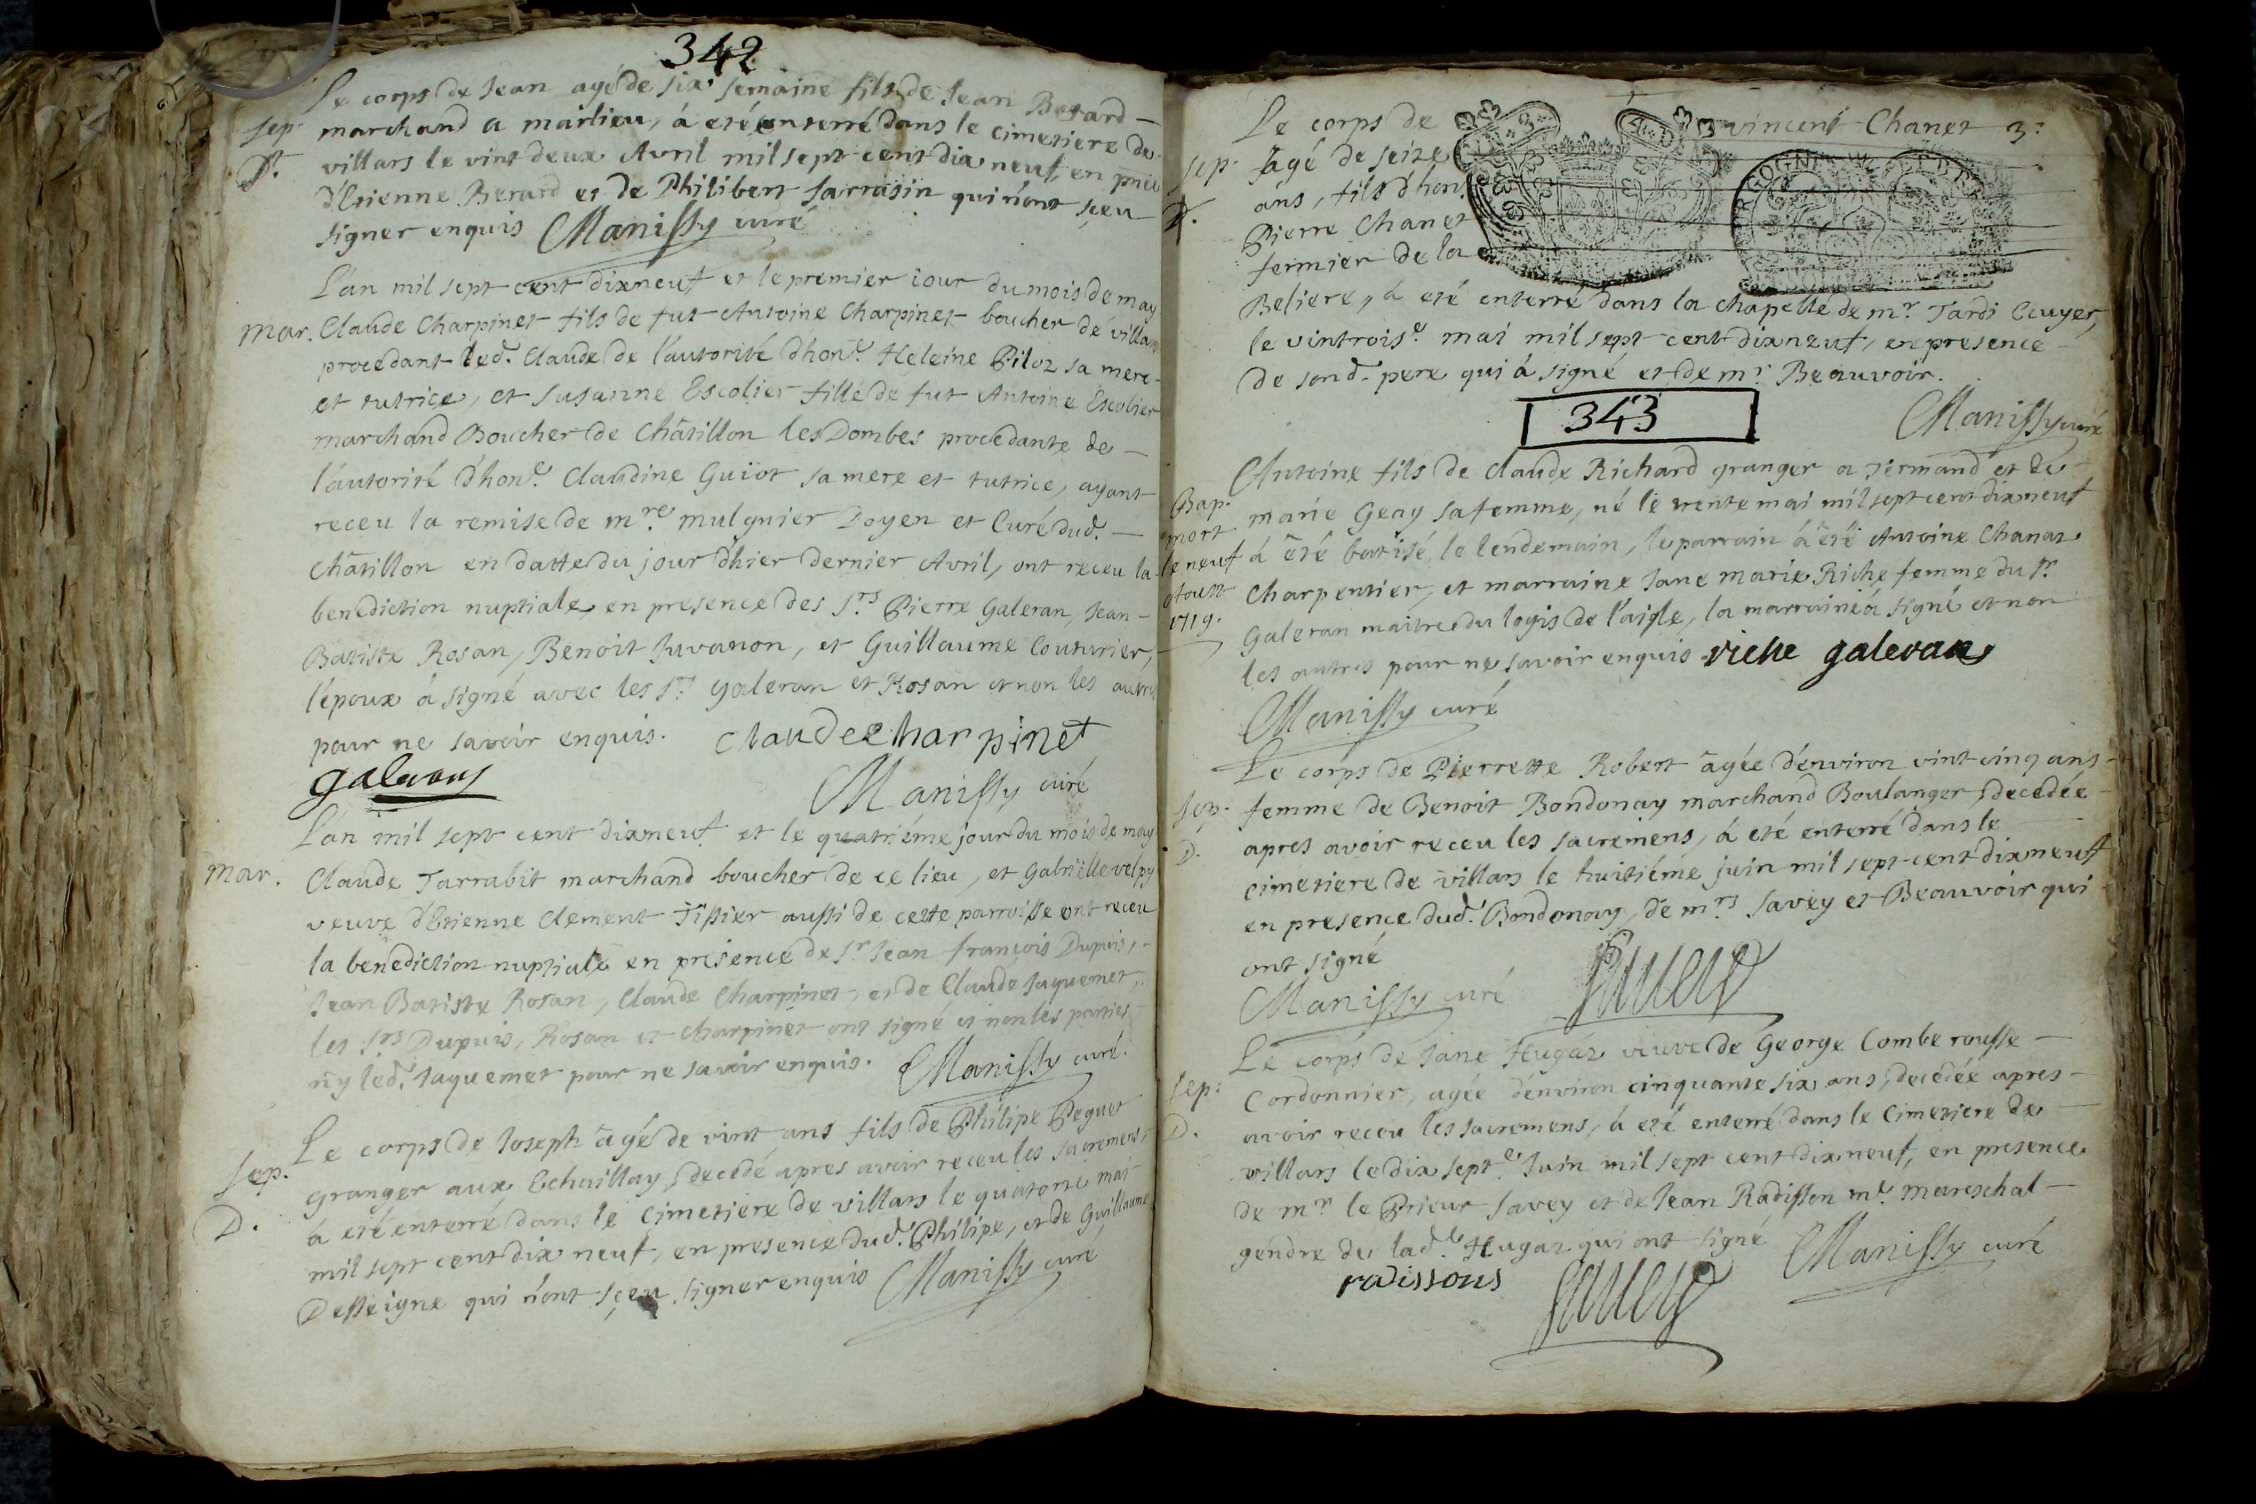 342
Le corps de Jean agé de six semaine fils de Jean Berard
sep. marchand a marlieu, á eté enterré dans le cimetiere de
villars le vint deux Avril mil sept cent dix neuf, en pnce
d'Etienne Berard et de Philibert Sarrasin qui n'ont sçeu
signer enquis Manissy curé
L'an mil sept cent dixneuf et le premier iour du mois de may
Mar. Claude Charpinet fils de fut Antoine Charpinet boucher de villars
procedant led. Claude de l'autorité d'hon.e Heleine Piloz sa mere
et tutrice, et Susanne Escolier fille de fut Antoine Escolier
marchand Boucher de Châtillon les Dombes procedante de
l'autorité d'hon.e Claudine Guiot sa mere et tutrice, ayant
receu la remise de mre mulgnier Doyen et Curé dud.
Châtillon en datte du jour d'hier dernier Avril, ont receu la
benediction nuptiale, en presence des Srs Pierre Galeran, Jean
Batiste Rosan, Benoit Juvanon, et Guillaume Couturier,
l'époux á signé avec les Srs galeran et Rosan et non les autres
pour ne savoir enquis. Claude Charpinet
galerans
Manissy curé
L'an mil sept cent dixneuf et le quatriéme jour du mois de may
Mar. Claude Tarrabit marchand boucher de ce lieu, et Gabrielle velpy
veuve d'Etienne Clement Tissier aussi de cette parroisse ont receu
la benediction nuptiale en presence de Sr Jean françois Dupuis,
Jean Batiste Rosan, Claude Charpinet, et de Claude Jaquemet,
les Srs Dupuis, Rosan et Charpinet ont signé et non les parties
n'y led. Jaquemet pour ne savoir enquis. Manissy curé.
Le corps de Joseph âgé de vint ans fils de Philipe Peguet
Sep. granger aux Echaillay, decedé apres avoir receu les sacremens,
D. á eté enterré dans le cimetiere de villars le quatorze mai
mil sept cent dix neuf, en presence dud. Philipe, et de Guillaume
Desseigne qui n'ont sçeu signer enquis Manissy curé
Le corps de vincent Chanet
Sep. agé de seize
ans, fils d'hon.
Pierre Chanet
fermier de la
Beliere, á eté enterré dans la chapelle de mr. Tardi Ecuyer,
le vintrois.e mai mil sept cent dixneuf, en presence
de sond. pere qui á signé et de mr Beauvoir.
343
Manissy curé
Antoine fils de Claude Richard granger a Jermand et de
Bap. marie Geay sa femme, né le trente mai mil sept cent dixneuf
mort
le neuf á êté batisé le lendemain, le parrain á êté Antoine Chanaz
Aoust Charpentier, et marraine Jane Marie Riche femme du Sr.
1719. Galeran maitre du logis de l'aigle, la marraine á signé et non
les autres pour ne savoir enquis riche galeran
Manissy curé
Le corps de Pierrette Robert âgée d'environ vint cinq ans
Sep. femme de Benoit Bondonay marchand Boulanger, decedée
D. apres avoir receu les sacremens, á eté enterré dans le
cimetiere de villars le huitiéme juin mil sept cent dixneuf
en presence dud. Bondonay, de mrs Savey et Beauvoir qui
ont signé
Manissy curé Savey
Le corps de Jane Hugaz veuve de George Comberousse
Sep. Cordonnier, agée d'environ cinquante six ans, decédée apres
D. avoir receu les sacremens, á eté enterré dans le Cimetiere de
villars le dix sept.e Juin mil sept cent dixneuf, en presence
de mr le Prieur Savey et de Jean Radisson me mareschal
gendre de lad.e Hugaz qui ont signé Manissy curé
radissons Savey